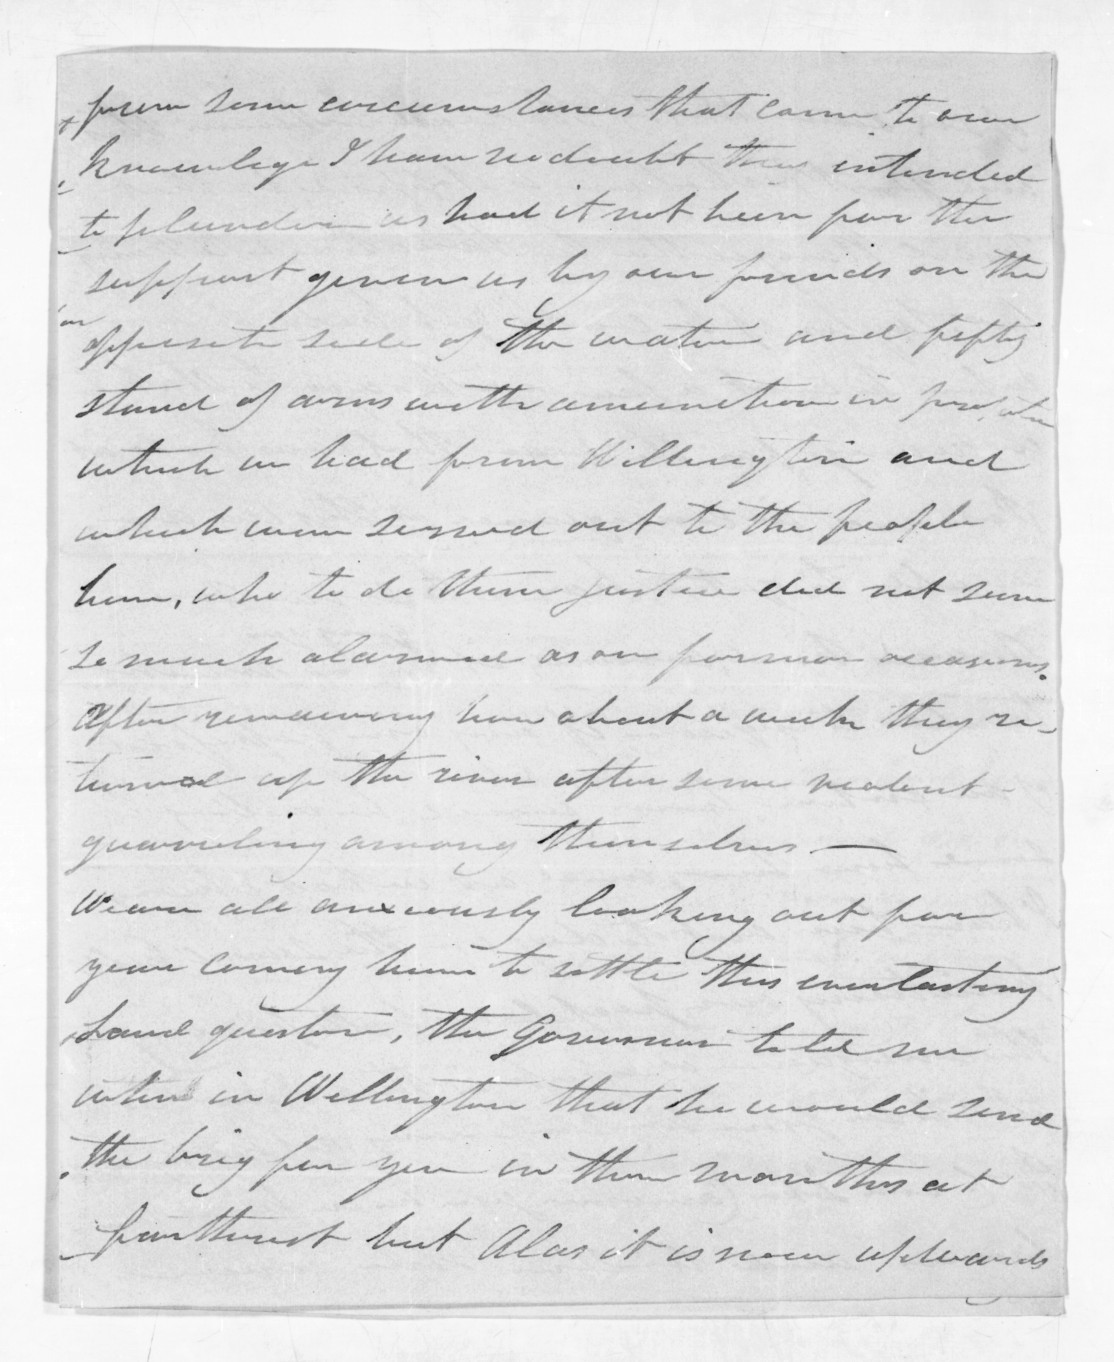 from some circumstances that came to our
knowlege I have no doubt they intended
to plunder us had it not been for the
support given us by our friends on the
opposite side of the water and fifty
stand of arms with amunition in
which we had from Wellington and
which were served out to the people
here, who to do them justice did not seem
so much alarmed as on former occasions.
After remaining here about a week they re-
turned up the river after some violent
quarreling among themselves —
We are all anxiously looking out for
your coming here to settle this everlasting
Land question, the Governor told me
when in Wellington that he would send
the brig for you in three months at
farthest but Alas it is now upwards